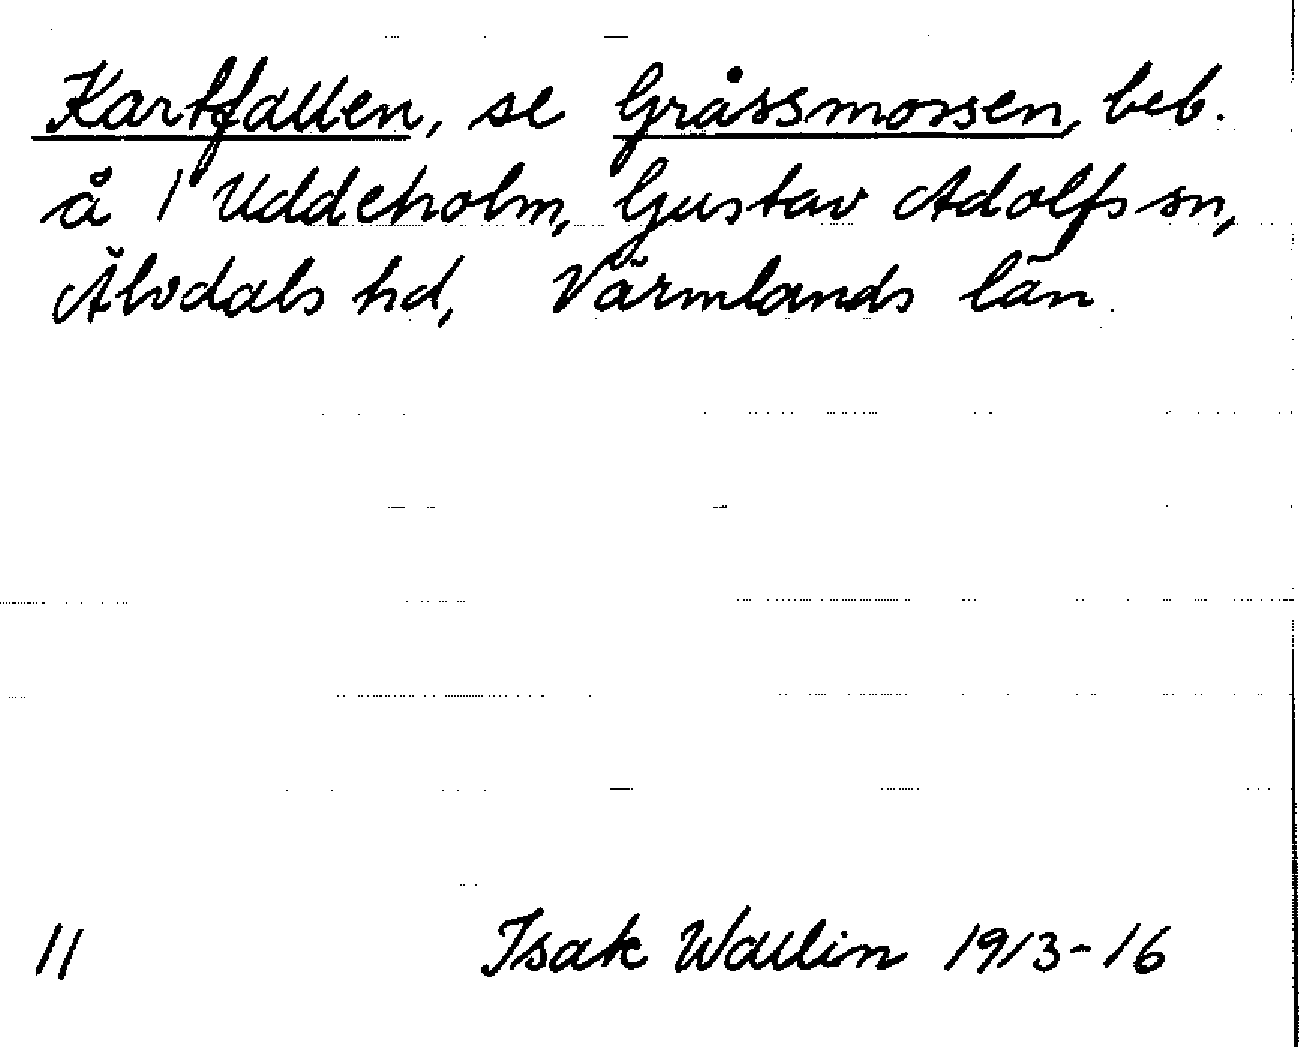 Kartfallen, se Gråssmossen, beb.
å 1 Uddeholm, Gustav Adolfs sn,
Älvdals hd, Värmlands län.
11 Isak Wallin 1913-16